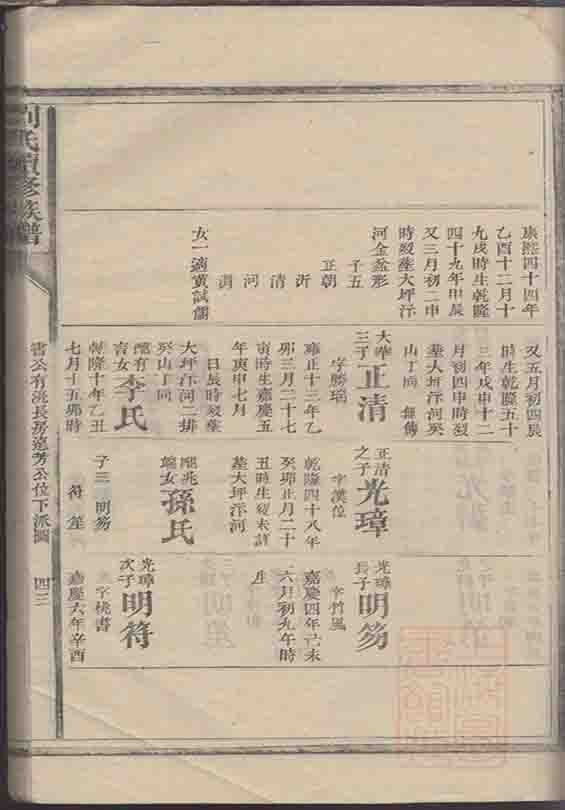 劉氏續修族譜
康熙四十四年
乙酉十二月十
九戌時生乾隆
四十九年甲辰
又三月初二申
時歿塟大坪汴
河金盆形
子五
正朝
沂
清
河
渭
女一適黃試儒
又五月初四辰
時生乾隆五十
三年戊申十二
月初四申時歿
塟大坪汴河癸
山丁向
大犖
三子
正清
字勝瑞
雍正十三年乙
卯三月二十七
寅時生嘉慶五
年庚申七月
日辰時歿塟
大坪汴河二排
癸山丁向
吉女李氏
乾隆十年乙丑
七月十五卯時
正清
之子
光璋
字漢位
乾隆四十八年
癸卯正月二十
五時生歿未詳
塟大坪汴河
配兆
瑞女
孫氏
子三
明笏
符
笙
光璋
長子
明笏
字竹風
嘉慶四年己未
六月初九午時
生
光璋
次子
明符
字桃書
嘉慶六年辛酉
書公有洸長房遠芳公位下派圖
四三